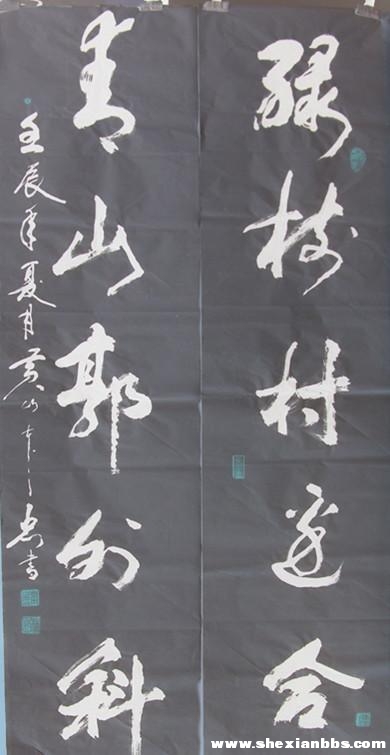 绿树村边合
青山郭外斜
壬辰年夏月黄山
书
www.shexianbbs.com